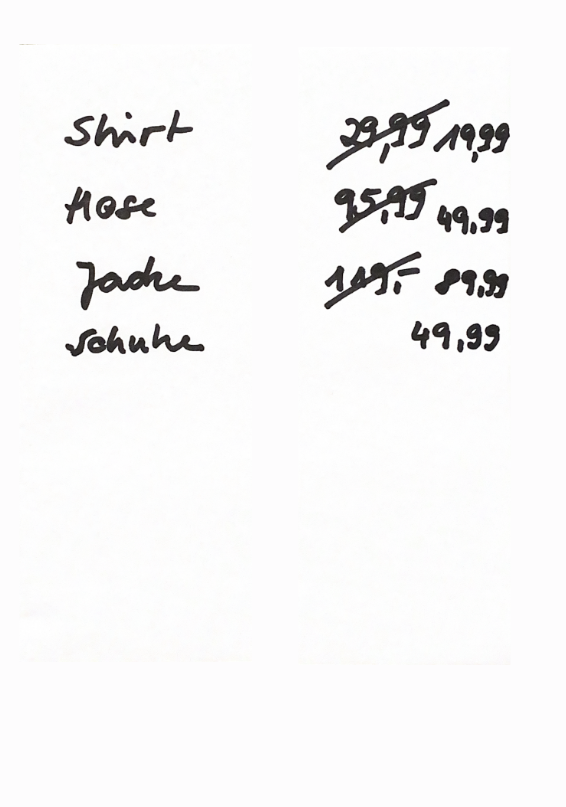 Shirt 29,99 19,99
Hose 95,99 49,99
Jacke 119,- 89,99
Schuhe 49,99